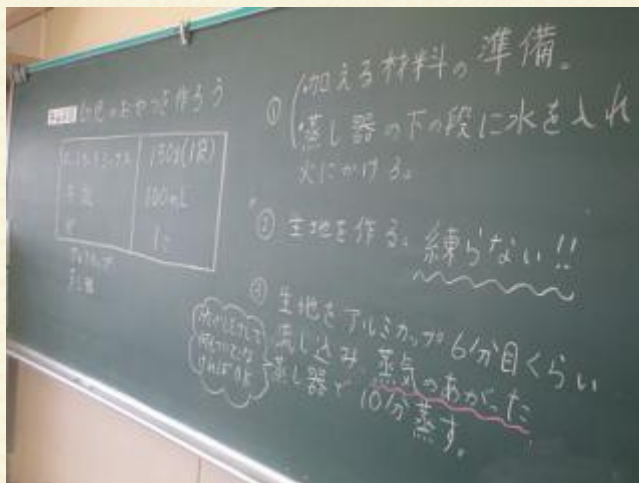 幼児のおやつを作ろう
ホットケーキミックス 150g(1袋)
牛乳 100mL
卵 1コ
アルミカップ
蒸し器
① 加える材料の準備。
蒸し器の下の段に水を入れ
火にかける。
② 生地を作る。練らない!!
③ 生地をアルミカップ6分目くらい
流し込み、蒸気のあがった
蒸し器で10分蒸す。